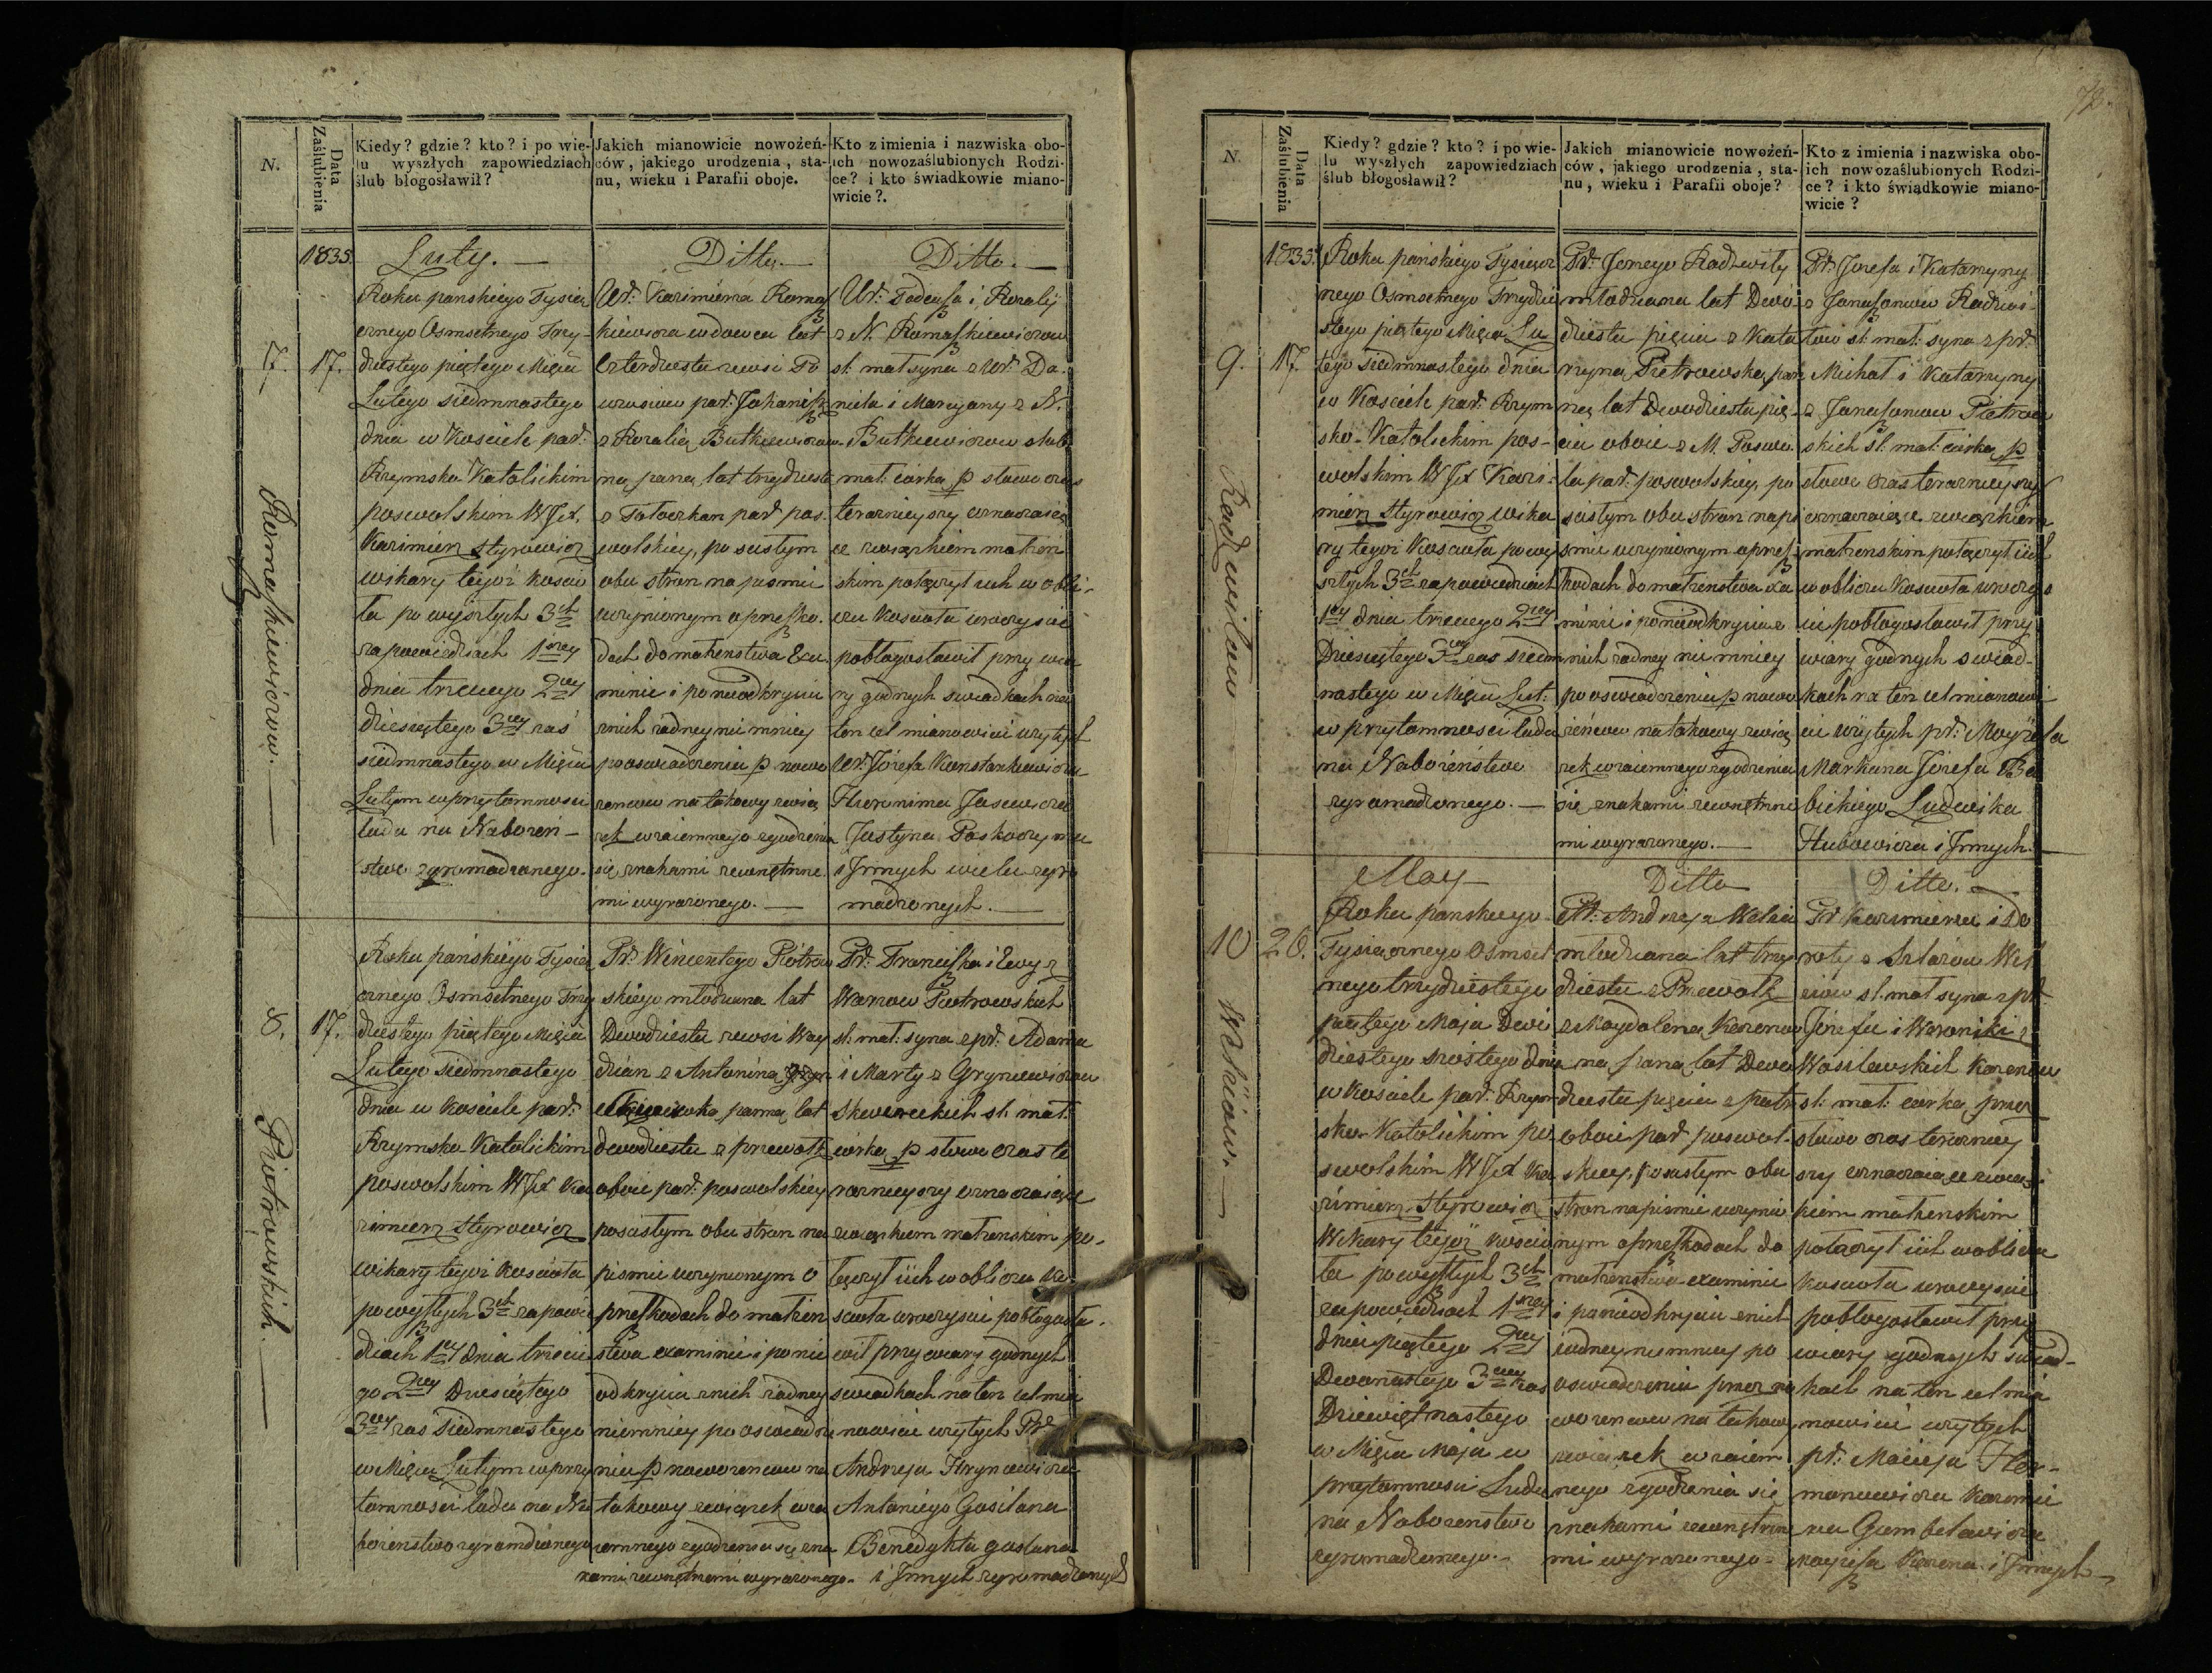 N.
Data Zaślubienia
Kiedy? gdzie? kto? i po wie-
lu wyszłych zapowiedziach
ślub błogosławił?
Jakich mianowicie nowożeń-
ców, jakiego urodzenia, sta-
nu, wieku i Parafii oboje.
Kto z imienia i nazwiska obo-
ich nowozaślubionych Rodzi-
ce? i kto świadkowie miano-
wicie?.
1835.
Luty. —
Ditto. —
Ditto. —
7.
17.
Romaszkiewiczow. —
Roku pańskiego Tysią
cznego Osmsetnego Trzy-
dziestego piątego Mięsia
Lutego siedmnastego
dnia w Kosciele par:
Rzymsko Katolickim
poswolskim WJX.
Kazimierz Styrowicz
wikary tegoż koscio
ła po wyszłych 3ch
zapowiedziach 1szey
dnia trzeciego 2giey
dziesiętego 3ciey zaś
siedmnastego w Mięsiu
Lutym w przytomnosci
ludu na Nabożeń-
stwo zgromadzonego.
Ur: Kazimierza Romasz
kiewicza wdowca lat
czterdziestu zewsi Po
par: Johanisz
z Rozalią Butkiewiczow-
ną panną, lat trzydziestu
par: pos-
wolskiey, po scisłym
obu stron na pismie
uczynionym o przeszko-
dach do małżenstwa Exa
minie i po nieodkryciu
znich żadney niemniey
po oswiadczeniu p nowo
żencow na takowy zwią
zek wzaiemnego zgodzenia
się znakami zewnętrzne
mi wyrażonego. —
Ur: Tadeusza i Rozalij
z N. Romaszkiewiczow
sl: mał: syna z Ur: Da-
niela i Maryany z N.
Butkiewiczow slub
mał: corką p słowo oras
teraznieyszy oznaczaiące
związkiem małżeń
skim połączył ich w obli-
czu Koscioła uroczyscie
pobłogosławił przy wia
ry godnych swiadkach na
ten cel mianowicie użytych
Ur: Józefa Konstankiewicza
Hieronima Jasiewicza
Justyna Poskoczyma
i Jnnych wielu zgro
madzonych. —
8.
17.
Piotrowskich. —
Roku pańskiego Tysią
cznego Osmsetnego Trzy
dziestego piątego Mięsia
Lutego siedmnastego
dnia w kosciele par:
Rzymsko Katolickim
poswolskim WJX Ka
zimierz Styrowicz
wikary tegoż Koscioła
po wyszłych 3ch zapowie
dziach 1ey dnia trzecie
go 2giey Dziesiętego
3ciey zas Siedmnastego
w Mięsiu Lutym w przy
tomnosci ludu na Na
bożenstwo zgromadzonego
Pr: Wincentego Piotrow
skiego młodziana lat
Dwudziestu zewsi Way
dzian z Antoniną
panną lat
dwudziestu z przewołk
oboie par: poswolskiey
po scisłym obu stron na
pismie uczynionym o
przeszkodach do małżen
stwa examinie i po nie
odkryciu znich żadney
niemniey po oswiadcze
niu p nowożencow na
takowy związek wza
iemnego zgodzenia się zna
kami zewnętrznemi wyrażonego.
Pr: Franciszka i Ewy z
Piotrowskich
sl: mał: syna z pr: Adama
i Marty z Gryniewiczow
Skwereckich sl: mał:
corką p słowo oras te
raznieyszy oznaczaiące
związkiem małżenskim po-
łączył iich w obliczu Ko
scioła uroczyscie pobłogosła-
wił przy wiary godnych
swiadkach na ten cel mia
nowicie użytych Pr:
Andrzeja Hryncewicza
Antoniego Gasilana
Benedykta gasilana
i Jnnych zgromadzonych
78.
N.
Data Zaślubienia
Kiedy? gdzie? kto? i po wie-
lu wyszłych zapowiedziach
ślub błogosławił?
Jakich mianowicie nowożeń-
ców, jakiego urodzenia, sta-
nu, wieku i Parafii oboje?
Kto z imienia i nazwiska obo-
ich nowozaślubionych Rodzi-
ce? i kto świadkowie miano-
wicie?
1835.
9.
17
Radziwiłow
Roku pańskiego Tysiącz
nego Osmsetnego Trzydzie
stego piątego Mięsia Lu
tego siedmnastego dnia
w Kosciele par: Rzym
sko-Katolickim pos-
wolskim WJX Kazi-
mierz Styrowicz wika
ry tegoż Koscioła po wy
szłych 3ch zapowiedziach
1ey dnia trzeciego 2giey
Dziesiętego 3ciey zas siedm
nastego w Mięsiu Lut:
w przytomnosci ludu
na Nabożeństwo
zgromadzonego. —
Pr: Jerzego Radziwiły
młodziana lat Dwu-
dziestu pięciu z Kata
rzyną Pietrowską pan
ną lat Dwudziestu pię-
ciu oboie z M. Poswo-
la par: poswolskiey, po
scisłym obu stron na pi
smie uczynionym o przesz
kodach do małżenstwa exa
minie i po nieodkryciu z
nich żadney niemniey
po oswiadczeniu p nowo
żeńcow na takowy zwią
zek wzaiemnego zgodzenia
się znakami zewnętrzne
mi wyrażonego. —
Pr: Jozefa i Katarzyny
z Janusonow Radziwi-
łow sl: mał: syna z pr:
Michał i Katarzyny
z Janusonow Pietrow
skich sl: mał: corką p
słowo oras teraznieyszy
oznaczaiące związkiem
małżenskim połączył iich
w obliczu Koscioła uroczys
cie pobłogosławił przy
wiary godnych swiad-
kach na ten cel mianowi
cie użytych pr: Moyżesza
Markana Józefa Ba
bickiego Ludwika
Hubowicza i Jnnych. —
May —
Ditto
Ditto. —
10
26.
Welsiow. —
Roku panskiego
Tysiącznego Osmset
nego trzydziestego
piątego Maja Dwu
dziestego szostego dnia
w kosciele par: Rzym
sko-Katolickim po
swolskim WJX Ka
zimierz Styrowicz
Wikary tegoż koscio
ła po wyszłych 3ch
zapowiedziach 1szey
dnia piątego 2giey
Dwonastego 3ciey zas
Dziewiętnastego
w Mięsiu Maja w
przytomnosci Ludu
na Nabożenstwo
zgromadzonego. —
Pr: Andrzeja Welsia
młodziana lat trzy
dziestu z Przewołk
z Magdaleną Karenow
ną panną lat Dwu
dziestu pięciu z
oboie par: poswol-
skiey, po scisłym obu
stron na pismie uczynio
nym o przeszkodach do
małżenstwa examinie
i po nieodkryciu znich
żadney niemniey po
oswiadczeniu przez no
wożencow na takowy
związek wzaiem
nego zgodzenia się
znakami zewnętrzne
mi wyrażonego
Pr: Kazimierza i Do
roty z Wel
siow sl: mał: syna z pr:
Józefa i Weroniki z
Wasilewskich Karenow
sl: mał: corką przez
słowo oras terazniey
szy oznaczaiące związ-
kiem małżenskim
połączył iich w obliczu
koscioła uroczyscie
pobłogosławił przy
wiary godnych swiad-
kach na ten cel mia
nowicie użytych
pr: Macieja Her-
manowicza Kazimie
rza Gumbelewicza
Moyżesza Karena i Jnnych —